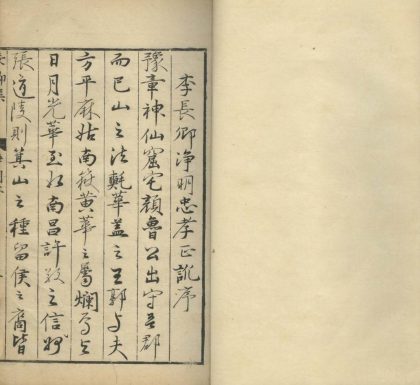 李長卿淨明忠孝正訛序
豫章神仙窟宅顏魯公出守吾郡
而巴山之法華蓋之王郭与夫
方平麻姑南嶽黃華之屬爛焉与
日月光華至於南昌許敬之信州
張道陵則箕山之種留侯之裔皆